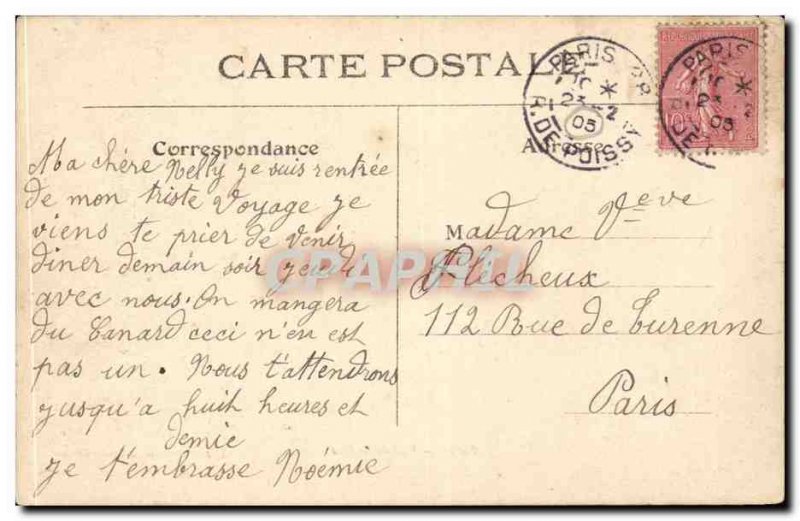 CARTE POSTALE
PARIS
23 -2
05
R. DE POISSY
PARIS
23
05
R. DE
10c
Correspondance
Adresse
Ma chère Nelly je suis rentrée
de mon triste voyage je
viens te prier de venir
diner demain soir jeudi
avec nous. On mangera
du Canard ceci n'en est
pas un. Nous t'attendrons
jusqu'a huit heures et
demie
je t'embrasse Noémie
Madame Veve
Flécheux
112 Rue de Turenne
Paris
CPAPHIL